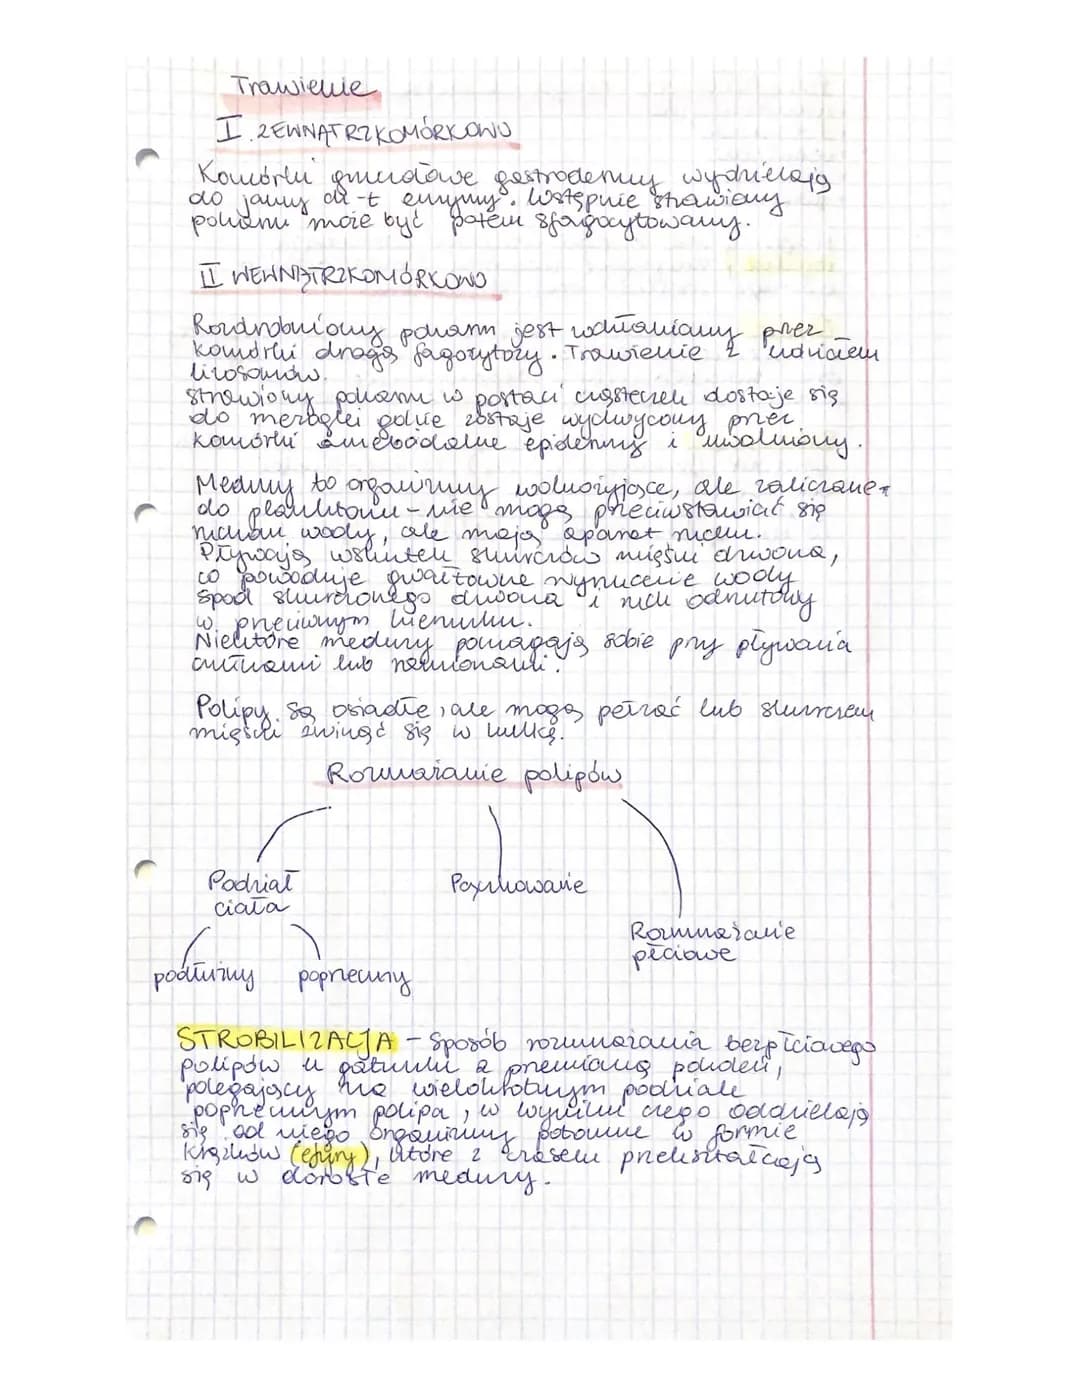 Trawienie
I. ZEWNĄTRZKOMÓRKOWO
Komórki gruczołowe gastrodermy wydzielają
do jamy ch-t enzymy. Wstępnie strawiony
pokarm może być potem sfagocytowany.
II WEWNĄTRZKOMÓRKOWO
Rozdrobniony pokarm jest wchłaniany przez
komórki drogą fagocytozy. Trawienie z udziałem
lizosomów.
Strawiony pokarm w postaci cząsteczek dostaje się
do mezoglei gdzie zostaje wychwycony przez
komórki ameboidalne epidermy i uwolniony.
Meduzy to organizmy wolnożyjące, ale zaliczane
do planktonu - nie mogą przeciwstawiać się
ruchom wody, ale mają aparat ruchu.
Pływają wskutek skurczów mięśni dzwona,
co powoduje gwałtowne wyrzucenie wody
spod skurczonego dzwona i ruch odrzutowy
w przeciwnym kierunku.
Niektóre meduzy pomagają sobie przy pływaniu
czułkami lub ramionami.
Polipy są osiadłe, ale mogą pełzać lub skurczem
mięśni zwinąć się w kulkę.
Rozmnażanie polipów
Podział
ciała
Pączkowanie
Rozmnażanie
płciowe
podłużny poprzeczny
STROBILIZACJA - Sposób rozmnażania bezpłciowego
polipów u gatunku z przemianą pokoleń,
polegający na wielokrotnym podziale
poprzecznym polipa, w wyniku czego oddzielają
się od niego organizmy potomne w formie
krążków (efyry), które z czasem przekształcają
się w dorosłe meduzy.